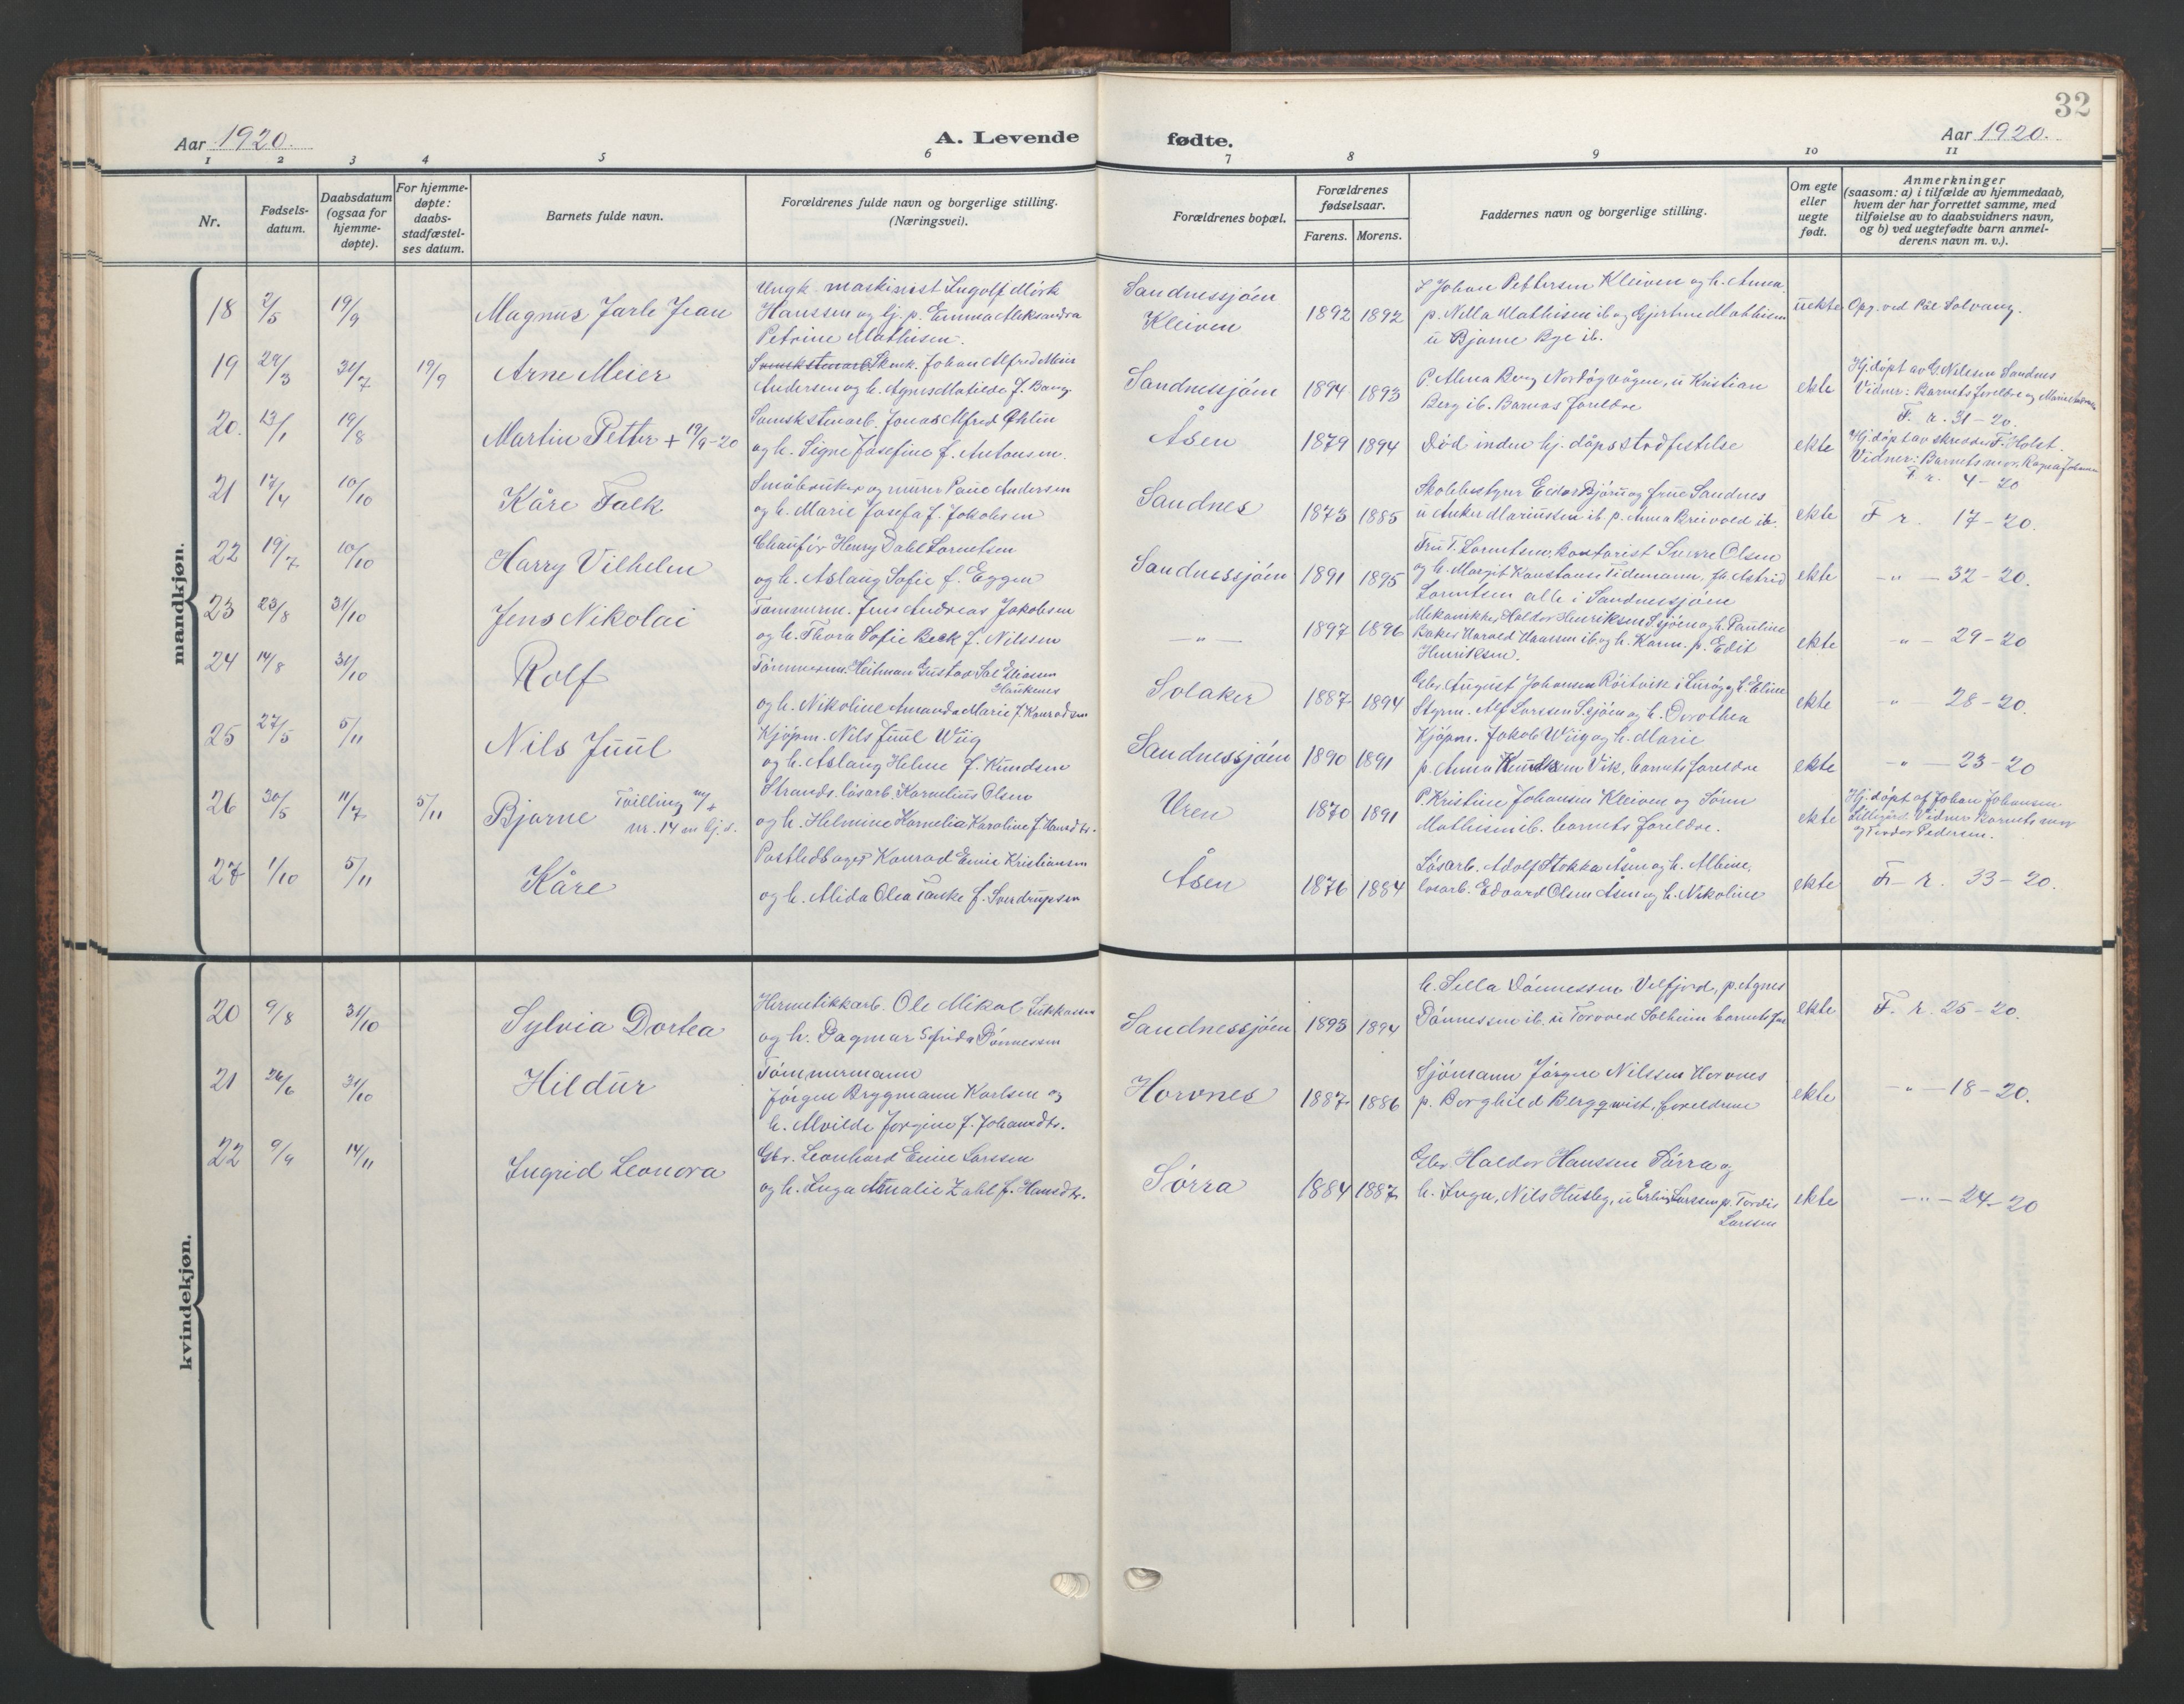 32
Aar 1920.
A. Levende
fødte.
Aar 1920.
1 2 3 4 5 6 7 8 9 10 11
Nr.
Fødsels-
datum.
Daabsdatum
(ogsaa for
hjemme-
døpte).
For hjemme-
døpte:
daabs-
stadfæstel-
ses datum.
Barnets fulde navn.
Forældrenes fulde navn og borgerlige stilling.
(Næringsvei).
Forældrenes bopæl.
Forældrenes
fødselsaar.
Farens. Morens.
Faddernes navn og borgerlige stilling.
Om egte
eller
uegte
født.
Anmerkninger
(saasom: a) i tilfælde av hjemmedaab,
hvem der har forrettet samme, med
tilføielse av to daabsvidners navn,
og b) ved uegtefødte barn anmel-
derens navn m. v.).
mandkjøn.
18 2/5 19/9 Magnus Jarle Jean
Ungk. maskinist Ingolf Mörk
Hanssen og pj. p. Emma Aleksandra
Petrine Mathisen.
Sandnessjöen
Kleiven
1892 1892
Johan Pettersen Kleiven og h. Anna,
p. Nella Mathisen ib og Gjertine Mathisen
u Bjarne Bye ib.
uekte Opg. ved Pål Solvang.
19 29/3 31/7 19/9 Arne Meier
Skenk. Johan Alfred Meier
Andersen og h. Agnes Matilde f. Berg
Sandnessjöen 1894 1893
P. Alma Berg Nordögvågen, u Kristian
Berg ib. Barnas foreldre
ekte
Hj. döpt av G. Nilsen Sandnes
Vidner: Barnets foreldre og Marie
F. r. 31-20.
20. 13/1 19/8 Martin Petter + 19/9-20
Svensk stenarb. Jonas Alfred Öhlin
og h. Signe Josefine f. Antonsen.
Åsen 1879 1894 Död inden hj. dåpsstadfestelse ekte
Hj. döpt av skredder F. Holst.
Vidner: Barnets mor, Ragna Johansen
F. r. 4-20
21 17/4 10/10 Kåre Falk
Småbruker og murer Paul Andersen
og h. Marie Josefa f. Jakobsen
Sandnes 1873 1885
Skolebestyrer Eidar Björu og frue Sandnes
u Anker Mariussen ib p. Anna Breivoed ib.
ekte F r. 17-20.
22 19/7 10/10 Harry Vilhelm
Chaufför Henry Dahl Lorentsen
og h. Aslaug Sofie f. Eggen
Sandnessjöen 1891 1895
Fru T. Lorentsen, Kontorist Sverre Olsen
og h. Margit Konstanse Tidemann, fr. Astrid
Lorentsen alle i Sandnessjöen
ekte -"- 32-20.
23 23/8 31/10 Jens Nikolai
Tömmerm. Jens Andreas Jakobsen
og h. Thora Sofie Beck f. Nilssen
-"- 1897 1896
Mekanikker Haldor Henriksen Ssjöen og h. Pauline
Baker Harald Hansen ib og h. Karen. p. Edit
Henriksen.
ekte -"- 29-20
24 14/8 31/10 Rolf
Tömmerm. Heitman Gustav Sal Eliassen
Haukenes
og h. Nikoline Amanda Marie f. Konradsen
Solaker 1887 1894
Gbr. August Johansen Röitvik i Luröy og h. Eline
Styrm. Alf Larssen Ssjöen og h. Dorothea
ekte -"- 28-20.
25 27/5 5/11 Nils Juul
Kjöpm. Nils Juul Wiig
og h. Aslaug Helene f. Knudsen
Sandnessjöen 1890 1891
Kjöpm. Jakob Wiig og h. Marie
p. Anna Knudsen Vik, barnets foreldre
ekte -"- 23-20
26 30/5 11/7 5/11 Bjarne Tvilling m/
nr. 14 en hj. d.
Strands. lösarb. Kornelius Olsen
og h. Helmine Kornelia Karoline f. Hansdtr.
Uren 1870 1891
P. Kristine Johansen Kleiven og Sönn
Mathisen ib. barnets foreldre.
ekte
Hj. döpt af Johan Johansen
Vidner Barnets mor
og Teodor Pedersen.
27 1/10 5/11 Kåre
Postledsager Konrad Emil Kristiansen
og h. Alida Olea Tanke f. Sverdrupsen
Åsen 1876 1884
Lösarb. Adolf Stokka Åsen og h. Albine,
lösarb. Edvard Olsen Åsen og h. Nikoline
ekte F. r. 33-20.
kvindekjøn.
20 9/8 31/10 Sylvia Dortea
Hermetikkarb. Ole Mikal Lukkassen
og h. Dagmar Sofrida Dönnessen
Sandnessjöen 1895 1894
h. Sella Dönnessen Velfjord, p. Agnes
Dönnessen ib. u Torvod Solheim barnets for
ekte F. r. 25-20.
21 26/6 31/10 Hildur
Tömmermann
Jörgen Brygmann Karlsen og
h. Alvilde Jorgine f. Johansdtr.
Horvnes 1887 1886
Sjömann Jörgen Nilssen Horvnes
p. Borghild Bergqwist, foreldrene
ekte -"- 18-20.
22 9/9 14/11 Ingrid Leonora
Gbr. Leonhard Emil Larssen
og h. Inga Amalie Zahl f. Hansdtr.
Sörra 1884 1887
Gbr. Haldor Hanssen Sörra og
h. Inga, Nils Husby, u Erling Larssen p. Tordis
Larssen
ekte -"- 24-20